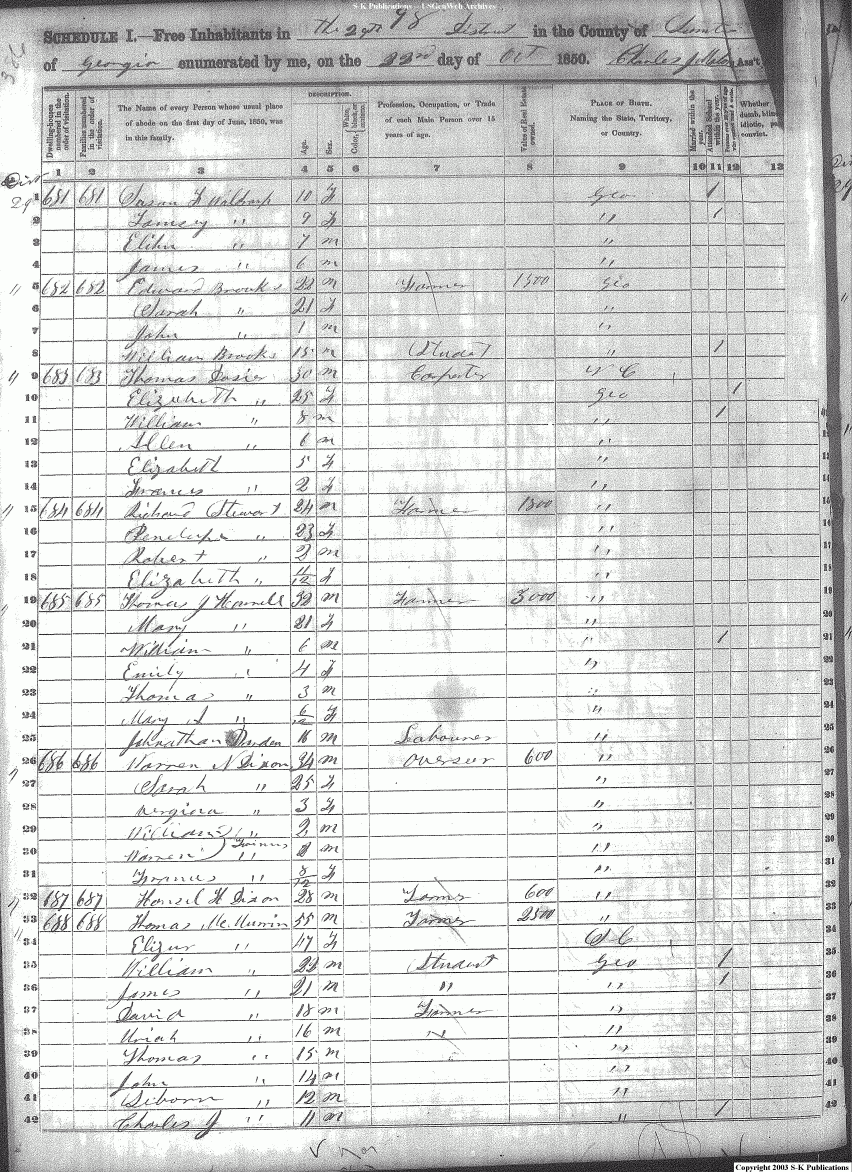 S-K Publications - USGenWeb Archives
SCHEDULE I.—Free Inhabitants in The 29th 98 District in the County of Sumter
of Georgia enumerated by me, on the 22nd day of Oct 1850. Charles J Ass't
Dwelling-houses numbered in the order of visitation. Families numbered in the order of visitation. The Name of every Person whose usual place of abode on the first day of June, 1850, was in this family. DESCRIPTION. Age. Sex. White, black, or mulatto. Color, Profession, Occupation, or Trade of each Male Person over 15 years of age. Value of Real Estate owned. PLACE OF BIRTH. Naming the State, Territory, or Country. Married within the year. Attended School within the year. Whether dumb, blind, idiotic, convict.
1 2 3 4 5 6 7 8 9 10 11 12 13
1 681 681 Susan F 10 F Geo 1
2 " 9 F " 1
3 Elihu " 7 m "
4 James " 6 m "
5 682 682 Edward Brooks 22 m Farmer 1500 Geo
6 Sarah " 21 F "
7 John " 1 m "
8 William Brooks 15 m Student " 1
9 683 683 Thomas Dosier 30 m Carpenter N C
10 Elizabeth " 25 F Geo 1
11 William " 8 m " 1
12 Allen " 6 m "
13 Elizabeth 5 F "
14 Frances " 2 F "
15 684 684 Richard Stewart 24 m Farmer 1300 "
16 Penelope " 23 F "
17 Robert " 2 m "
18 Elizabeth " 11/12 F "
19 685 685 Thomas J 32 m Farmer 3000 "
20 Mary " 21 F "
21 William " 6 m " 1
22 Emily " 4 F "
23 Thomas " 3 m "
24 Mary A " 6/12 F "
25 Johnathan 16 m Labourer "
26 686 686 Warren N Dixon 34 m Overseer 600 "
27 Sarah " 25 F "
28 Virginia " 3 F "
29 William " 2 m "
30 Warren } Twins " 2 m "
31 Frances " 8/12 F "
32 687 687 H Dixon 28 m Farmer 600 "
33 688 688 Thomas McMurrin 55 m Farmer 2500 "
34 " 47 F S C
35 William " 22 m Student Geo 1
36 James " 21 m " " 1
37 David " 18 m Farmer "
38 Uriah " 16 m " "
39 Thomas " 15 m "
40 John " 14 m "
41 " 12 m "
42 Charles J " 11 m " 1
Copyright 2003 S-K Publications